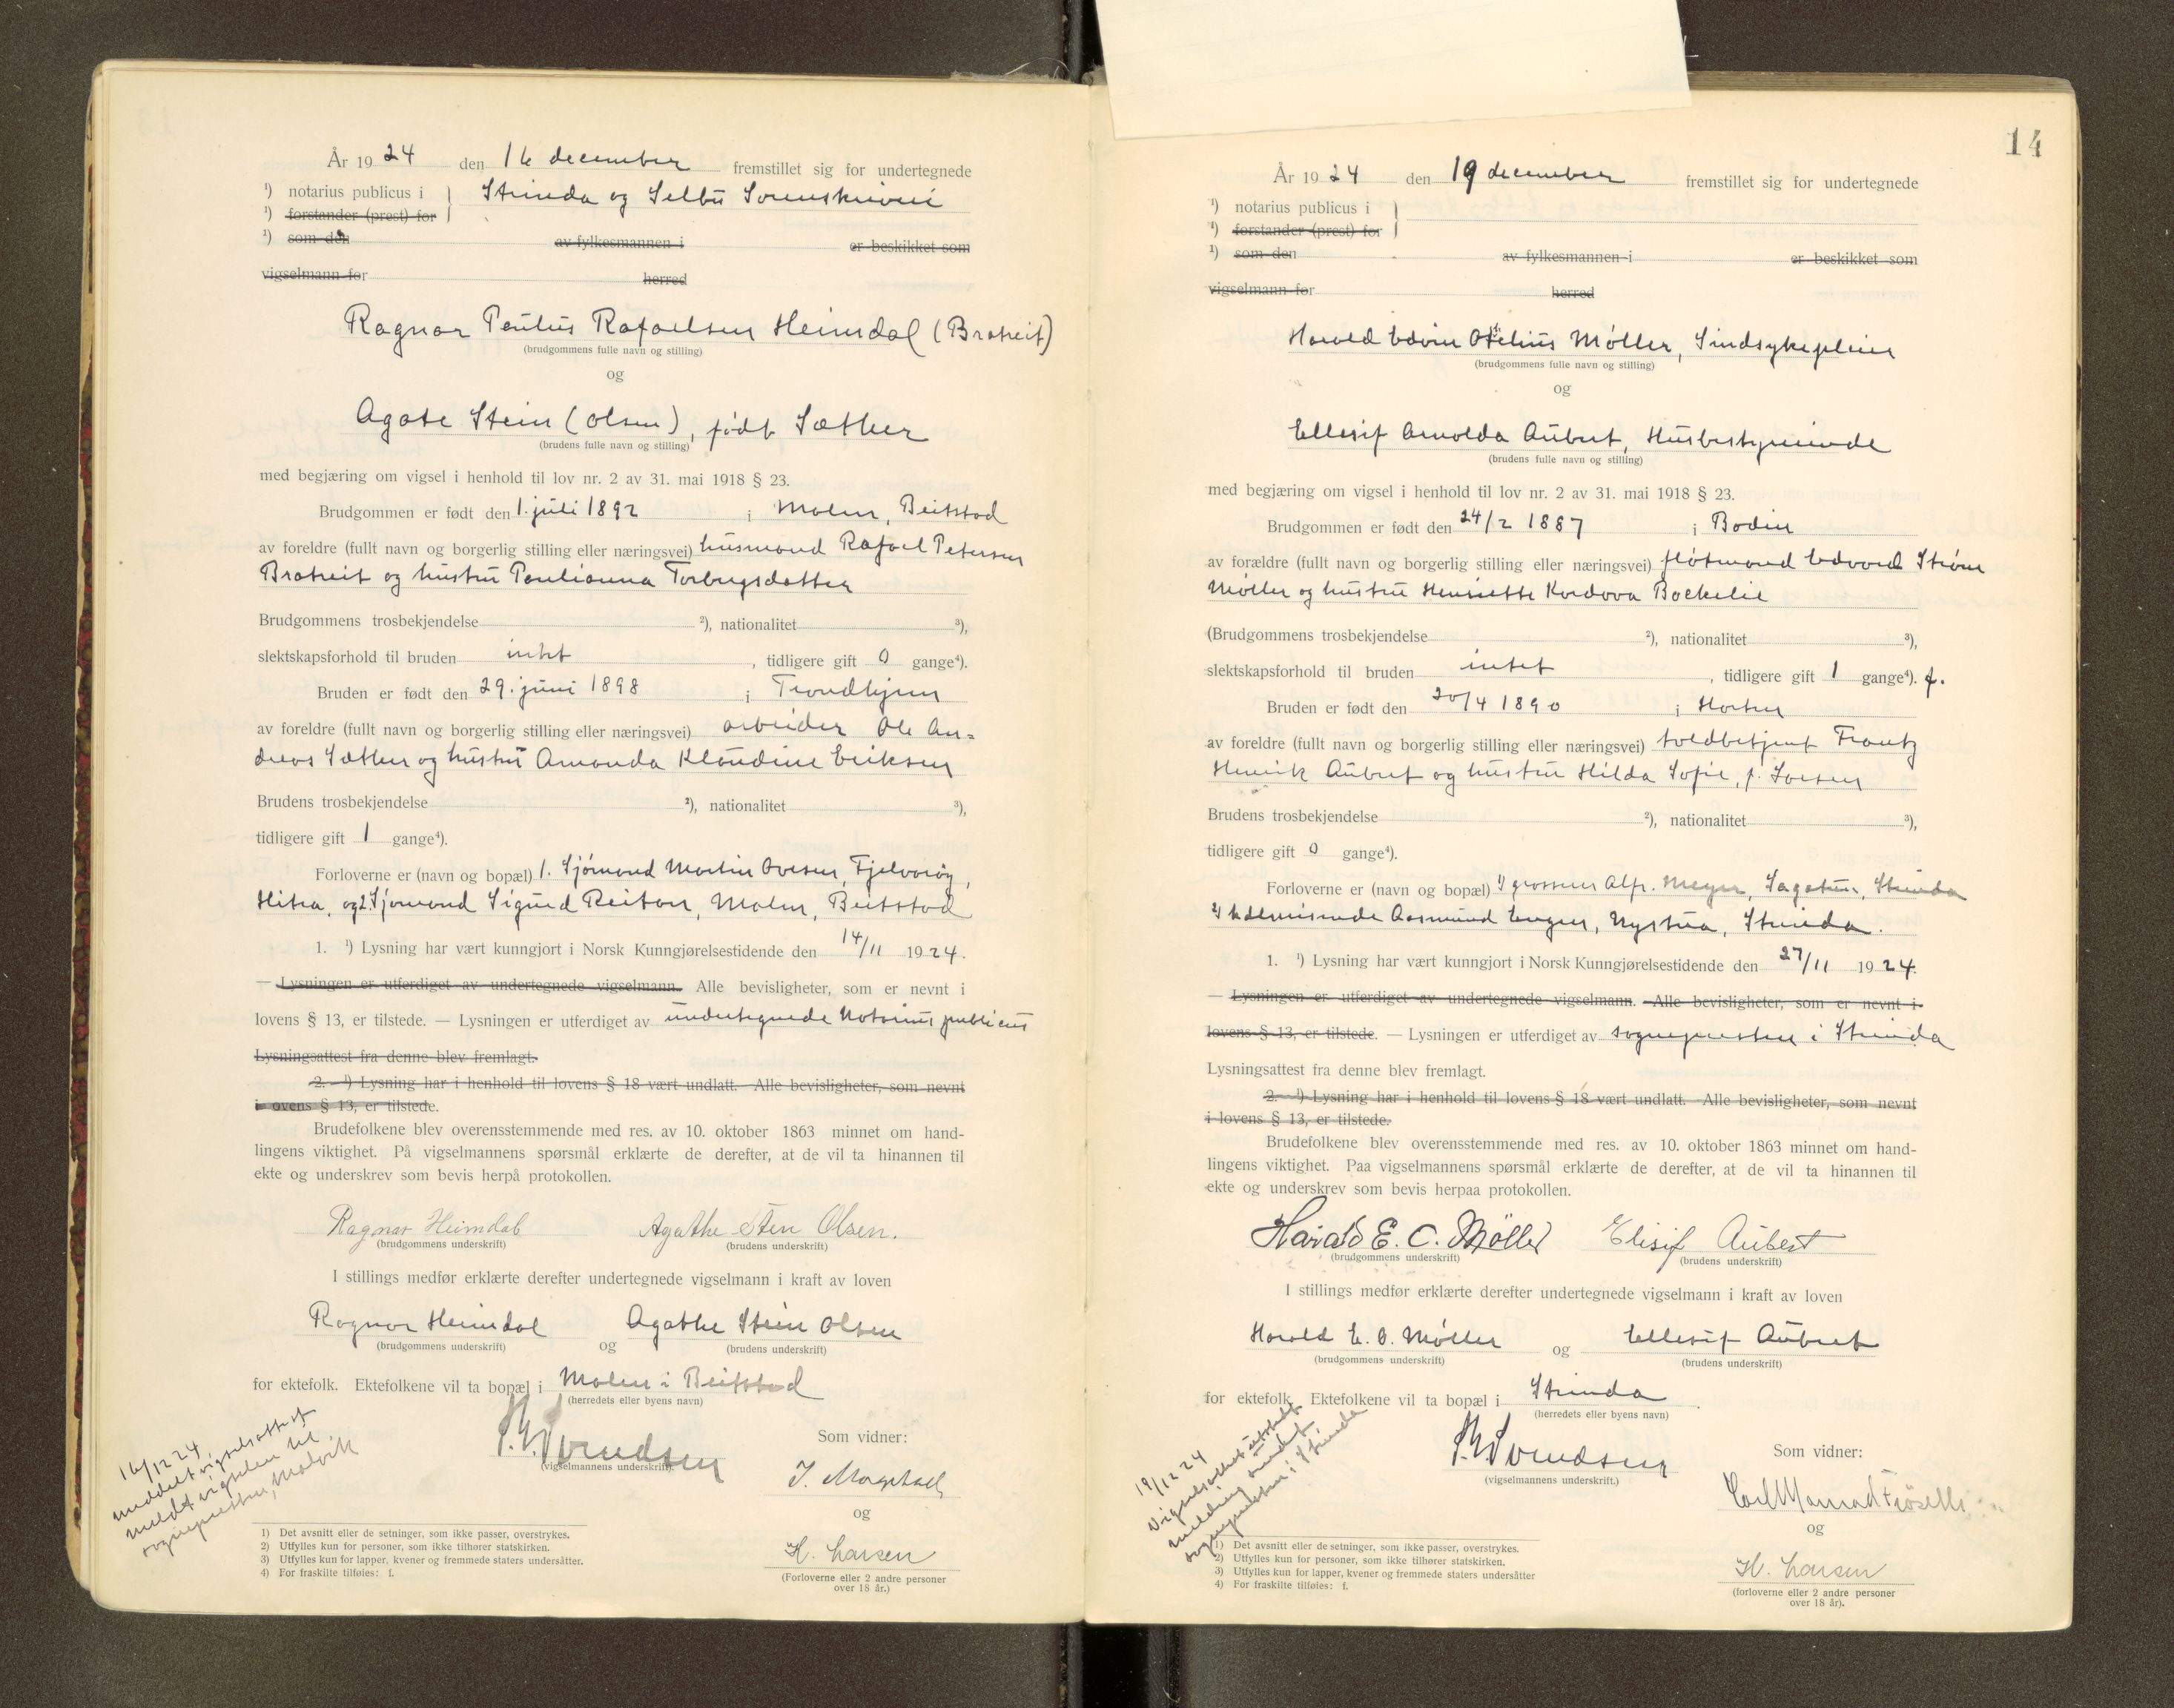 År 1924 den 16 december fremstillet sig for undertegnede
¹) notarius publicus i Strinda og Selbu Sorenskriveri
¹) forstander (prest) for
¹) som den av fylkesmannen i er beskikket som
vigselmann for herred
Ragnar Paulus Rafaelsen Heimdal (Bratreit)
(brudgommens fulle navn og stilling)
og
Agate Stein (Olsen), født Sæther
(brudens fulle navn og stilling)
med begjæring om vigsel i henhold til lov nr. 2 av 31. mai 1918 § 23.
Brudgommen er født den 1. juli 1892 i Malm, Beitstad
av foreldre (fullt navn og borgerlig stilling eller næringsvei) husmand Rafael Petersen
Bratreit og hustru Paulianna Torbergsdatter
Brudgommens trosbekjendelse ²), nationalitet ³),
slektskapsforhold til bruden intet, tidligere gift 0 gange⁴).
Bruden er født den 29. juni 1898 i Trondhjem
av foreldre (fullt navn og borgerlig stilling eller næringsvei) arbeider Ole An=
dreas Sæther og hustru Amanda Klaudine Eriksen
Brudens trosbekjendelse ²), nationalitet ³),
tidligere gift 1 gange⁴).
Forloverne er (navn og bopæl) 1. Sjømand Martin Ovesen, Fjelværøy,
Hitra, og 2. Sjømand Sigurd Reitan, Malm, Beitstad
1. ¹) Lysning har vært kunngjort i Norsk Kunngjørelsestidende den 14/11 1924.
— Lysningen er utferdiget av undertegnede vigselmann. Alle bevisligheter, som er nevnt i
lovens § 13, er tilstede. — Lysningen er utferdiget av undertegnede Notarius publicus
Lysningsattest fra denne blev fremlagt.
2. ¹) Lysning har i henhold til lovens § 18 vært undlatt. Alle bevisligheter, som nevnt
i ovens § 13, er tilstede.
Brudefolkene blev overensstemmende med res. av 10. oktober 1863 minnet om hand-
lingens viktighet. På vigselmannens spørsmål erklærte de derefter, at de vil ta hinannen til
ekte og underskrev som bevis herpå protokollen.
Ragnar Heimdal Agathe Sten Olsen.
(brudgommens underskrift) (brudens underskrift)
I stillings medfør erklærte derefter undertegnede vigselmann i kraft av loven
Ragnar Heimdal og Agathe Stein Olsen
(brudgommens underskrift) (brudens underskrift)
for ektefolk. Ektefolkene vil ta bopæl i Malm i Beitstad
(herredets eller byens navn)
Svendsen
(vigselmannens underskrift.)
Som vidner:
og
H. Larsen
(Forloverne eller 2 andre personer
over 18 år.)
16/12 24
meddelt vigselsattest
meldt vigselen til
sognepresten, Malvik
1) Det avsnitt eller de setninger, som ikke passer, overstrykes.
2) Utfylles kun for personer, som ikke tilhører statskirken.
3) Utfylles kun for lapper, kvener og fremmede staters undersåtter.
4) For fraskilte tilføies: f.
14
År 1924 den 19 december fremstillet sig for undertegnede
¹) notarius publicus i
¹) forstander (prest) for
¹) som den av fylkesmannen i er beskikket som
vigselmann for herred
Harald Edvin Møller, Sindsykepleier
(brudgommens fulle navn og stilling)
og
Ellesif Arnolda Aubert, Husbestyrerinde
(brudens fulle navn og stilling)
med begjæring om vigsel i henhold til lov nr. 2 av 31. mai 1918 § 23.
Brudgommen er født den 24/2 1887 i Bodin
av forældre (fullt navn og borgerlig stilling eller næringsvei) fløtmand Edvard Strøm
Møller og hustru Henriette Kordova Boekelie
(Brudgommens trosbekjendelse ²), nationalitet ³),
slektskapsforhold til bruden intet, tidligere gift 1 gange⁴). f.
Bruden er født den 20/4 1890 i Horten
av foreldre (fullt navn og borgerlig stilling eller næringsvei) toldbetjent Frantz
Henrik Aubert og hustru Hilda Sofie, f. Iversen
Brudens trosbekjendelse ²), nationalitet ³),
tidligere gift 0 gange⁴).
Forloverne er (navn og bopæl) 1) grosserer Alfr. Meyer, Sagatun, Strinda
2) Asmund Engen, Nystua, Strinda.
1. ¹) Lysning har vært kunngjort i Norsk Kunngjørelsestidende den 27/11 1924.
— Lysningen er utferdiget av undertegnede vigselmann. Alle bevisligheter, som er nevnt i
lovens § 13, er tilstede. — Lysningen er utferdiget av sognepresten i Strinda
Lysningsattest fra denne blev fremlagt.
2. ¹) Lysning har i henhold til lovens § 18 vært undlatt. Alle bevisligheter, som nevnt
i lovens § 13, er tilstede.
Brudefolkene blev overensstemmende med res. av 10. oktober 1863 minnet om hand-
lingens viktighet. Paa vigselmannens spørsmål erklærte de derefter, at de vil ta hinannen til
ekte og underskrev som bevis herpaa protokollen.
Harald E. C. Möller Elisif Aubert
(brudgommens underskrift) (brudens underskrift)
I stillings medfør erklærte derefter undertegnede vigselmann i kraft av loven
Harald E. O. Møller og Ellesif Aubert
(brudgommens underskrift) (brudens underskrift)
for ektefolk. Ektefolkene vil ta bopæl i Strinda.
(herredets eller byens navn)
Svendsen
(vigselmannens underskrift.)
Som vidner:
og
H. Larsen
(forloverne eller 2 andre personer
over 18 år).
19/12 24
Vigselsattest utstedt
melding sendt
sognepresten i Strinda
1) Det avsnitt eller de setninger, som ikke passer, overstrykes.
2) Utfylles kun for personer, som ikke tilhører statskirken.
3) Utfylles kun for lapper, kvener og fremmede staters undersåtter
4) For fraskilte tilføies: f.